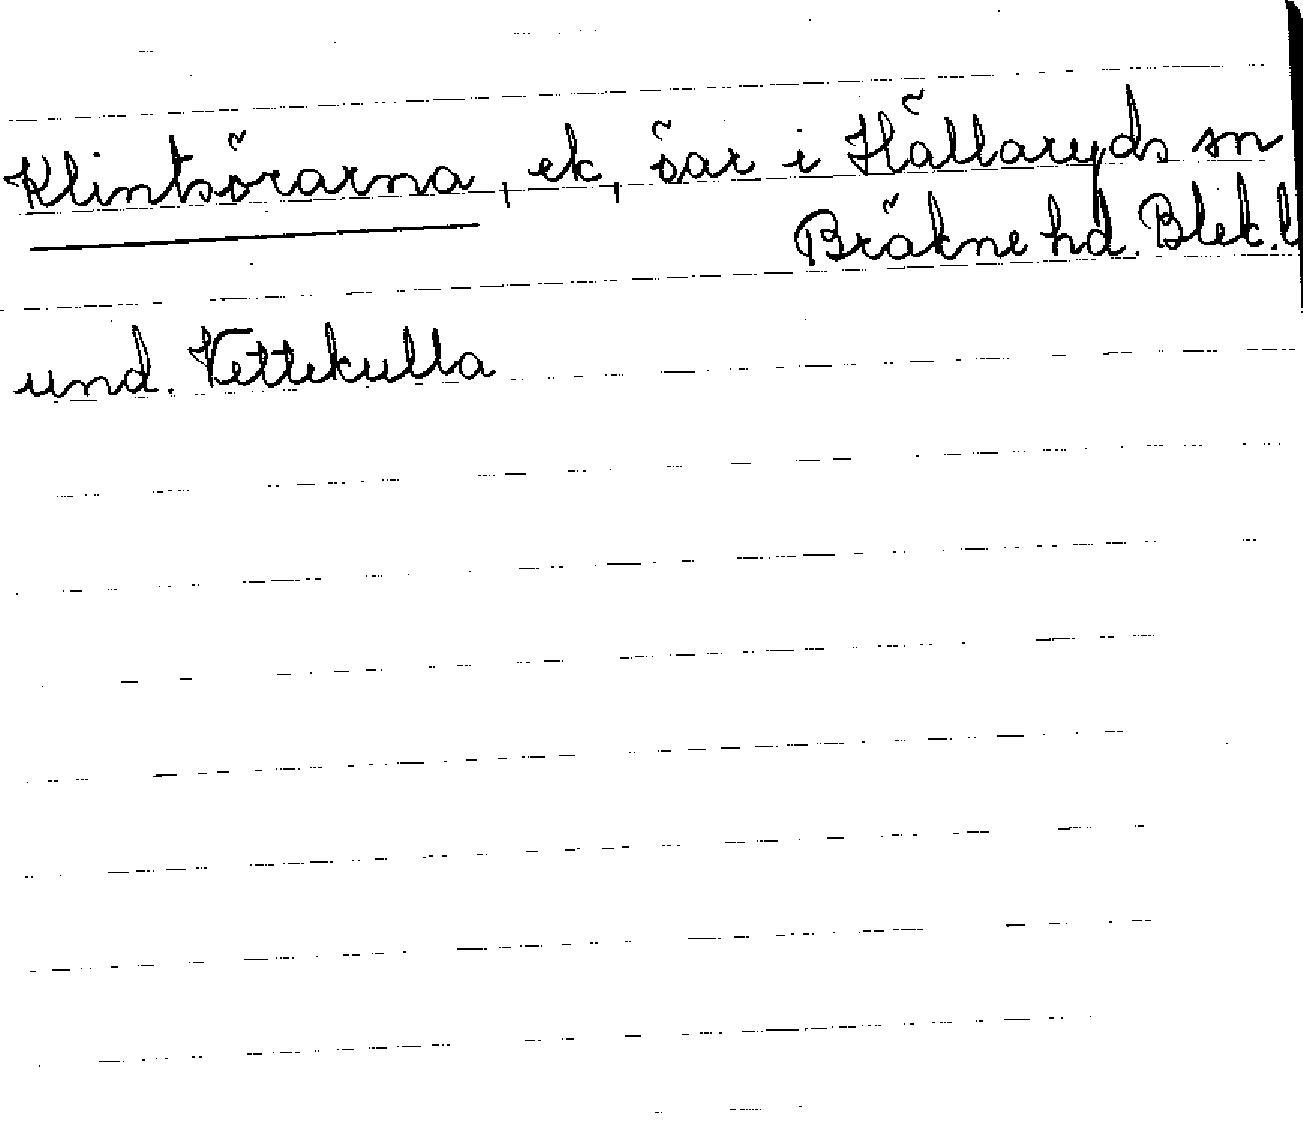 Klintsörarna, ek, öar i Hällaryds sn
Bräkne hd. Blek. l
und. Vettekulla